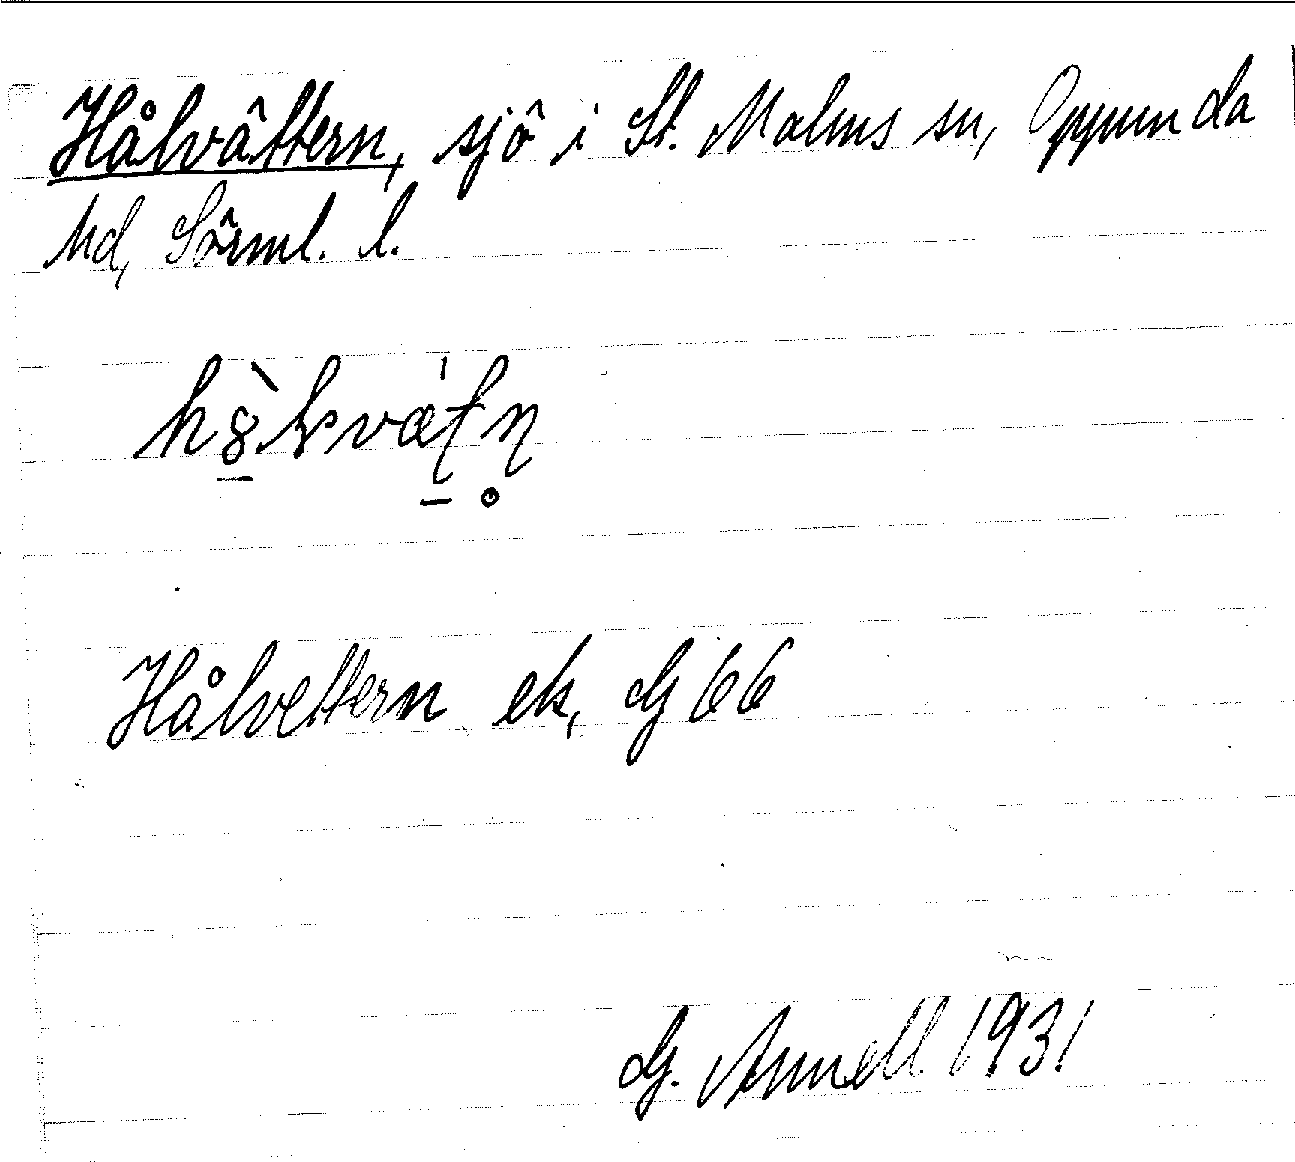 Hålvättern, sjö i St. Malms sn, Oppunda
hd, Sörml. l.
Hålvettern ek, G 66
G. Annell 1931